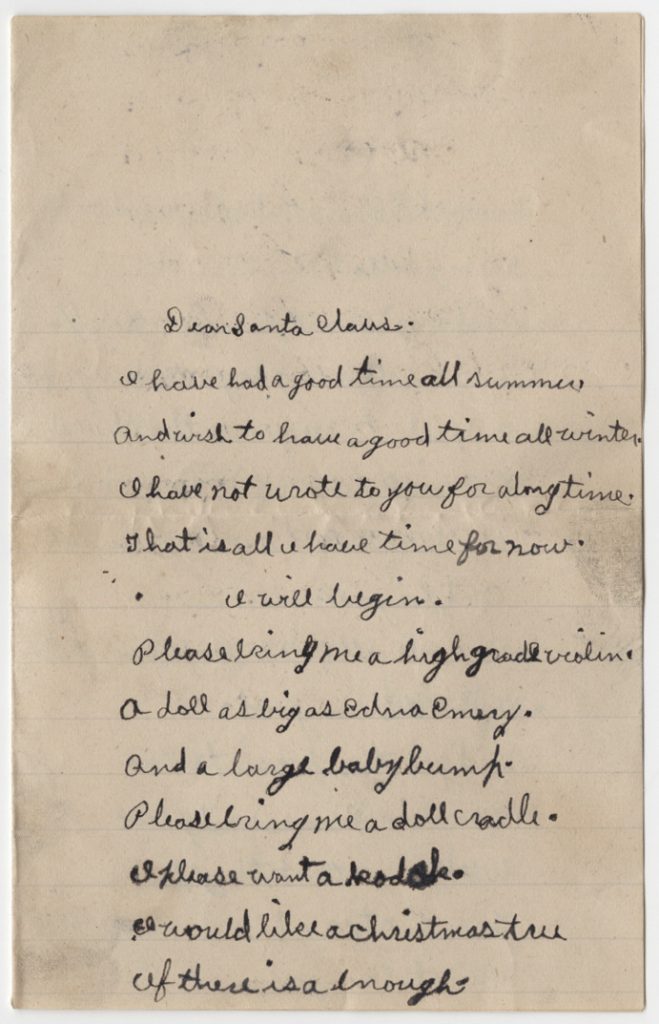 Dear Santa Claus.
I have had a good time all summer
And wish to have a good time all winter.
I have not wrote to you for along time.
That is all I have time for now.
I will begin.
Please bring me a high grade violin.
A doll as big as Edna Emery.
And a large baby bump.
Please bring me a doll cradle.
I please want a kodak.
I would like a christmas tree
If there is a enough